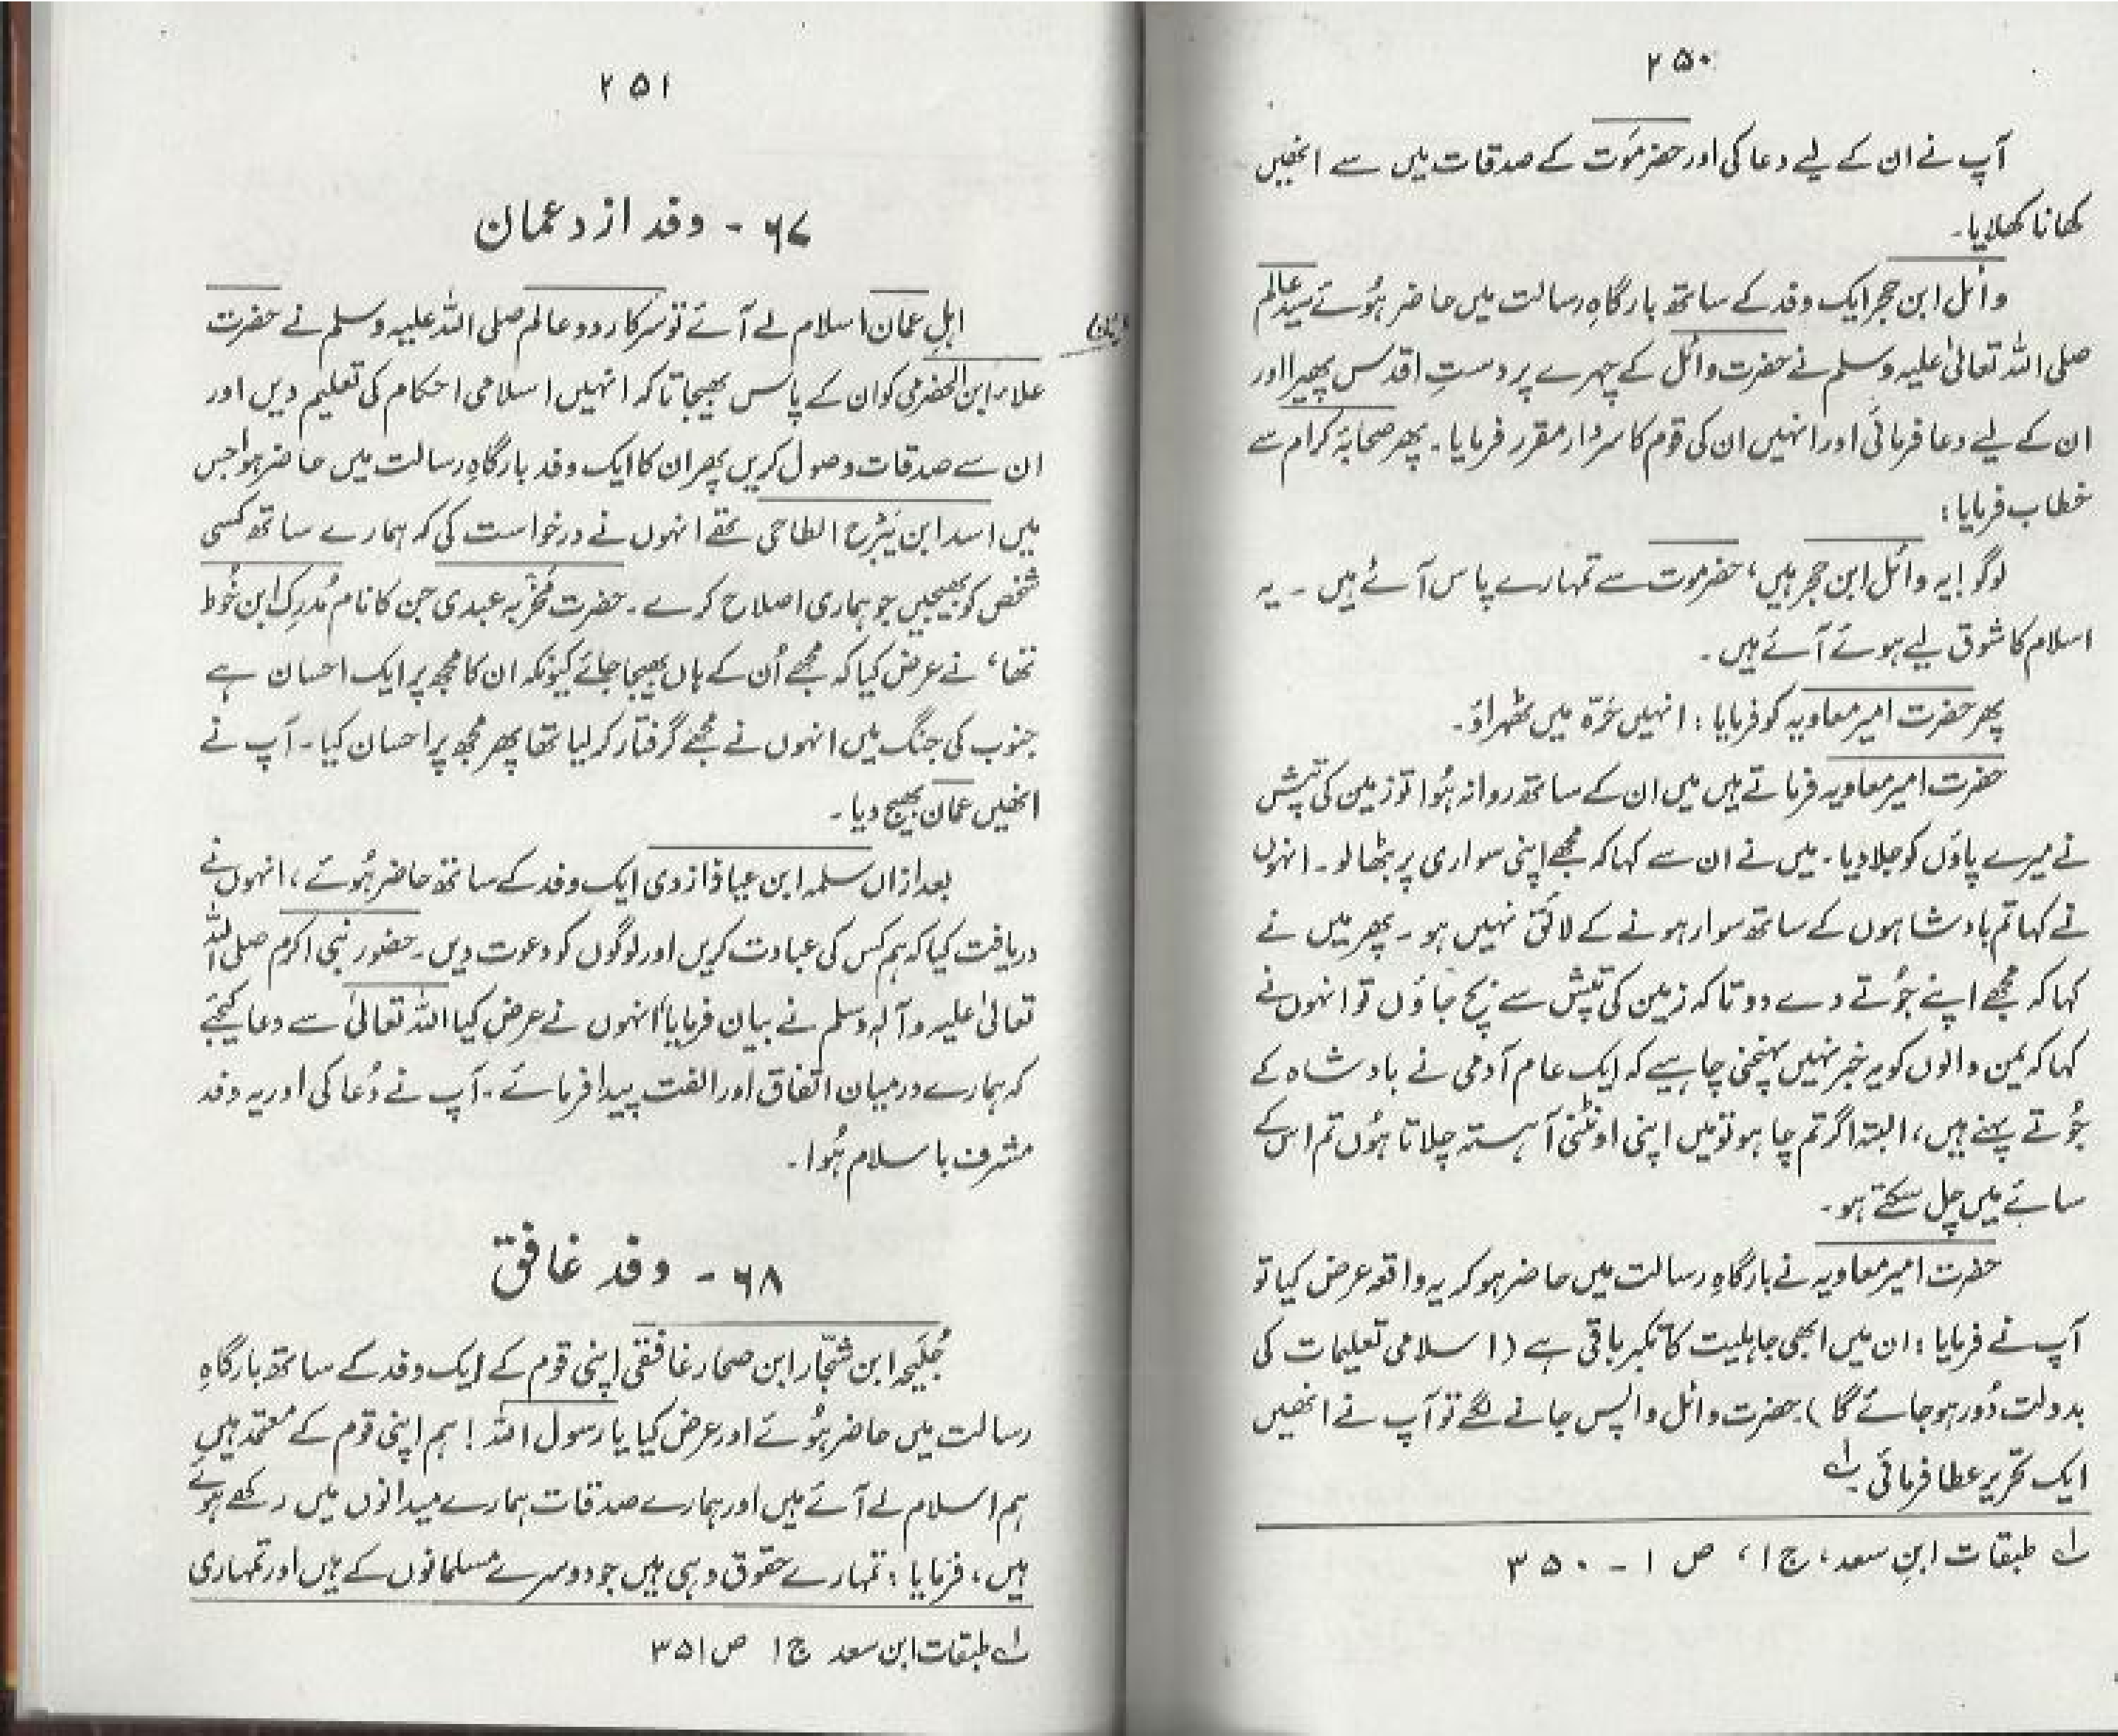 ۲۵۰
آپ نے ان کے لیے دعا کی اور حضرموَت کے صدقات میں سے انھیں
کھانا کھلایا۔
وائل ابن حجر ایک وفد کے ساتھ بارگاہِ رسالت میں حاضر ہُوئے سیّد عالم
صلی اللہ تعالیٰ علیہ وسلم نے حضرت وائل کے چہرے پر دستِ اقدس پھیرا اور
ان کے لیے دعا فرمائی اور انہیں ان کی قوم کا سردار مقرر فرمایا۔ پھر صحابۂ کرام سے
خطاب فرمایا:
لوگو! یہ وائل ابن حجر ہیں، حضرموت سے تمہارے پاس آئے ہیں ۔ یہ
اسلام کا شوق لیے ہوئے آئے ہیں ۔
پھر حضرت امیر معاویہ کو فرمایا: انہیں حَرّہ میں ٹھہراؤ۔
حضرت امیر معاویہ فرماتے ہیں میں ان کے ساتھ روانہ ہُوا تو زمین کی تپش
نے میرے پاؤں کو جلا دیا۔ میں نے ان سے کہا کہ مجھے اپنی سواری پر بٹھا لو۔ انہوں
نے کہا تم بادشاہوں کے ساتھ سوار ہونے کے لائق نہیں ہو۔ پھر میں نے
کہا کہ مجھے اپنے جُوتے دے دو تاکہ زمین کی تپش سے بچ جاؤں تو انہوں نے
کہا کہ یمن والوں کو یہ خبر نہیں پہنچنی چاہیے کہ ایک عام آدمی نے بادشاہ کے
جُوتے پہنے ہیں، البتہ اگر تم چاہو تو میں اپنی اونٹنی آہستہ چلاتا ہوں تم اس کے
سائے میں چل سکتے ہو۔
حضرت امیر معاویہ نے بارگاہِ رسالت میں حاضر ہو کر یہ واقعہ عرض کیا تو
آپ نے فرمایا: ان میں ابھی جاہلیت کا تکبر باقی ہے (اسلامی تعلیمات کی
بدولت دُور ہو جائے گا) حضرت وائل واپس جانے لگے تو آپ نے انھیں
ایک تحریر عطا فرمائی۔ لہ
لہ طبقات ابنِ سعد، ج ۱، ص ۱ - ۳۵۰
۲۵۱
۶۷ - وفد ازد عمان
اہلِ عمان اسلام لے آئے تو سرکار دو عالم صلی اللہ علیہ وسلم نے حضرت
علاء ابن الحضرمی کو ان کے پاس بھیجا تاکہ انہیں اسلامی احکام کی تعلیم دیں اور
ان سے صدقات وصول کریں پھر ان کا ایک وفد بارگاہِ رسالت میں حاضر ہوا جس
میں اسد ابن یَبْرح الطاحی تھے انہوں نے درخواست کی کہ ہمارے ساتھ کسی
شخص کو بھیجیں جو ہماری اصلاح کرے۔ حضرت مَخْرَبہ عبدی جن کا نام مُدرِک ابن خُوط
تھا، نے عرض کیا کہ مجھے اُن کے ہاں بھیجا جائے کیونکہ ان کا مجھ پر ایک احسان ہے
جنوب کی جنگ میں انہوں نے مجھے گرفتار کر لیا تھا پھر مجھ پر احسان کیا۔ آپ نے
انھیں عمان بھیج دیا۔
بعد ازاں سلمہ ابن عیاذ ازدی ایک وفد کے ساتھ حاضر ہُوئے، انہوں نے
دریافت کیا کہ ہم کس کی عبادت کریں اور لوگوں کو دعوت دیں۔ حضور نبی اکرم صلی اللہ
تعالیٰ علیہ وآلہ وسلم نے بیان فرمایا انہوں نے عرض کیا اللہ تعالیٰ سے دعا کیجئے
کہ ہمارے درمیان اتفاق اور الفت پیدا فرمائے۔ آپ نے دُعا کی اور یہ وفد
مشرف با سلام ہُوا۔
۶۸ - وفد غافق
جُلَیحہ ابن شجّار ابن صحار غافقی اپنی قوم کے ایک وفد کے ساتھ بارگاہِ
رسالت میں حاضر ہُوئے اور عرض کیا یا رسول اللہ! ہم اپنی قوم کے معتمد ہیں
ہم اسلام لے آئے ہیں اور ہمارے صدقات ہمارے میدانوں میں رکھے ہوئے
ہیں، فرمایا: تمہارے حقوق وہی ہیں جو دوسرے مسلمانوں کے ہیں اور تمہاری
لہ طبقات ابن سعد ج ۱ ص ۳۵۱